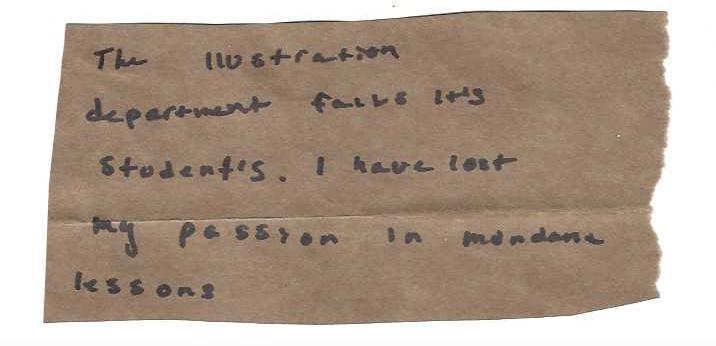 The Illustration
department fails it's
Student's. I have lost
my passion in mundane
lessons